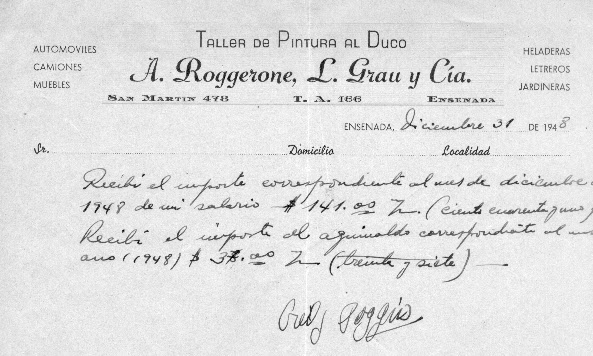 TALLER DE PINTURA AL DUCO
AUTOMOVILES
CAMIONES
MUEBLES
A. Roggerone, L. Grau y Cía.
HELADERAS
LETREROS
JARDINERAS
SAN MARTIN 478 T. A. 166 ENSENADA
ENSENADA, Diciembre 31 DE 1948
Sr. Domicilio Localidad
Recibí el importe correspondiente al mes de diciembre
1948 de mi salario $ 141.00 (ciento cuarenta y uno
Recibí el importe del aguinaldo correspondiente al
año (1948) $ (treinta y siete)